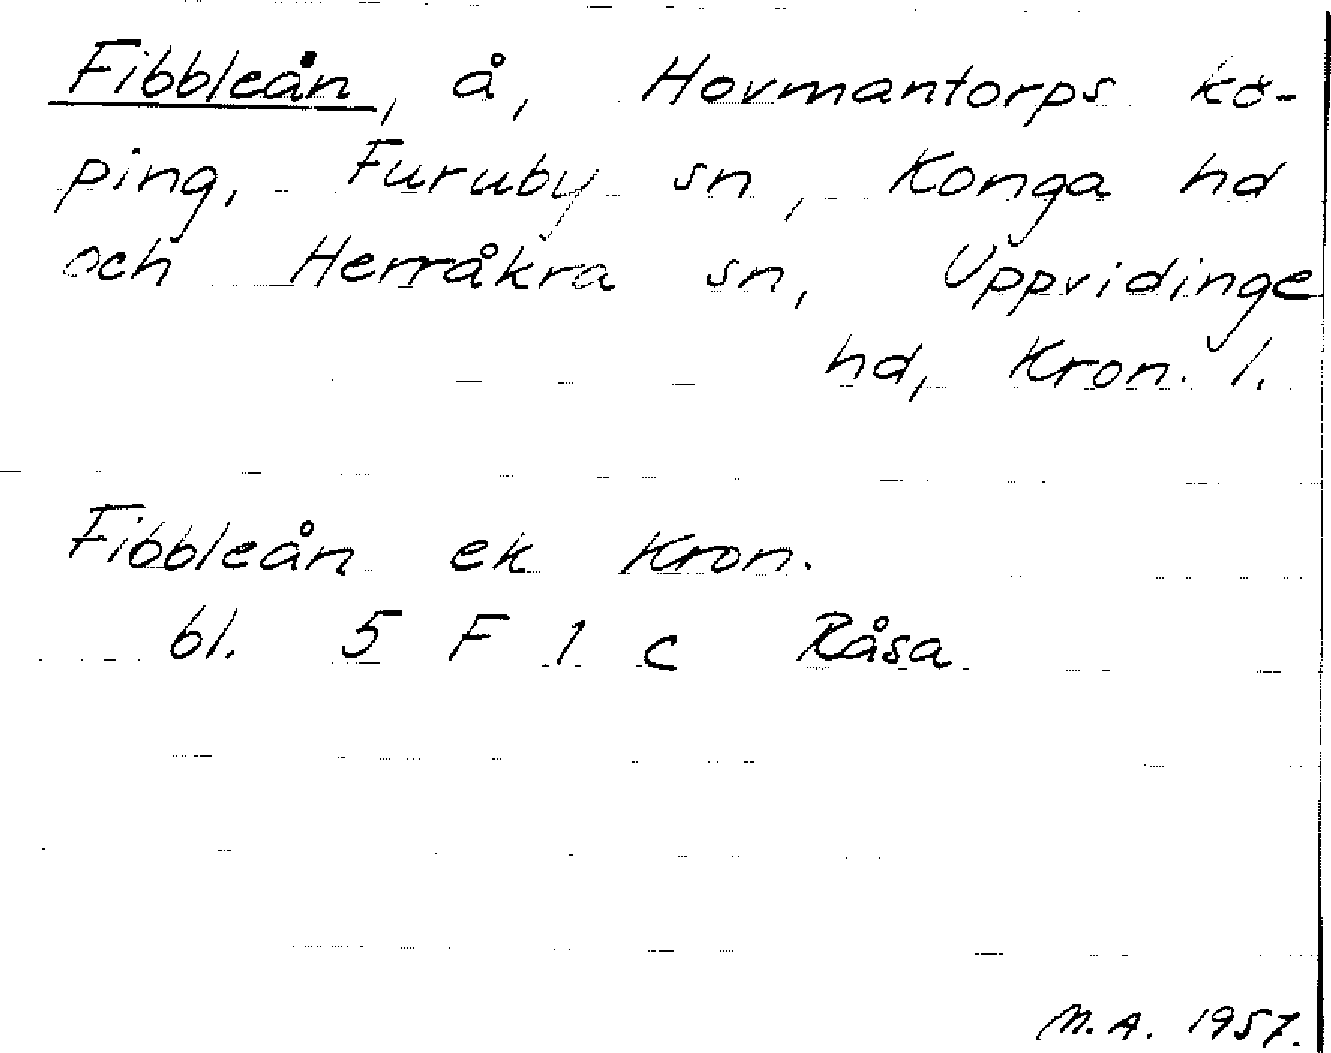 Fibbleån, å, Hovmantorps kö-
ping, Furuby sn, Konga hd
och Herråkra sn, Uppvidinge
hd, Kron. l.
Fibbleån ek Kron.
bl. 5 F 1 c Råsa
M.A. 1957.